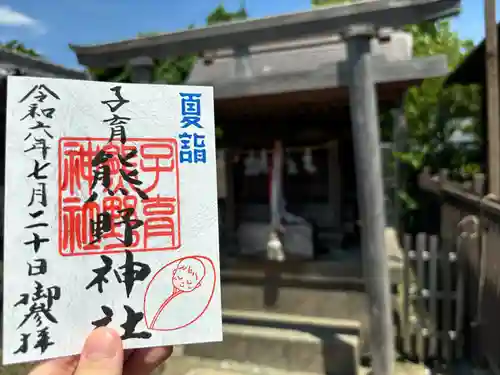 夏詣
子育
熊野神社
子育熊野神社
令和六年七月二十日
御拝